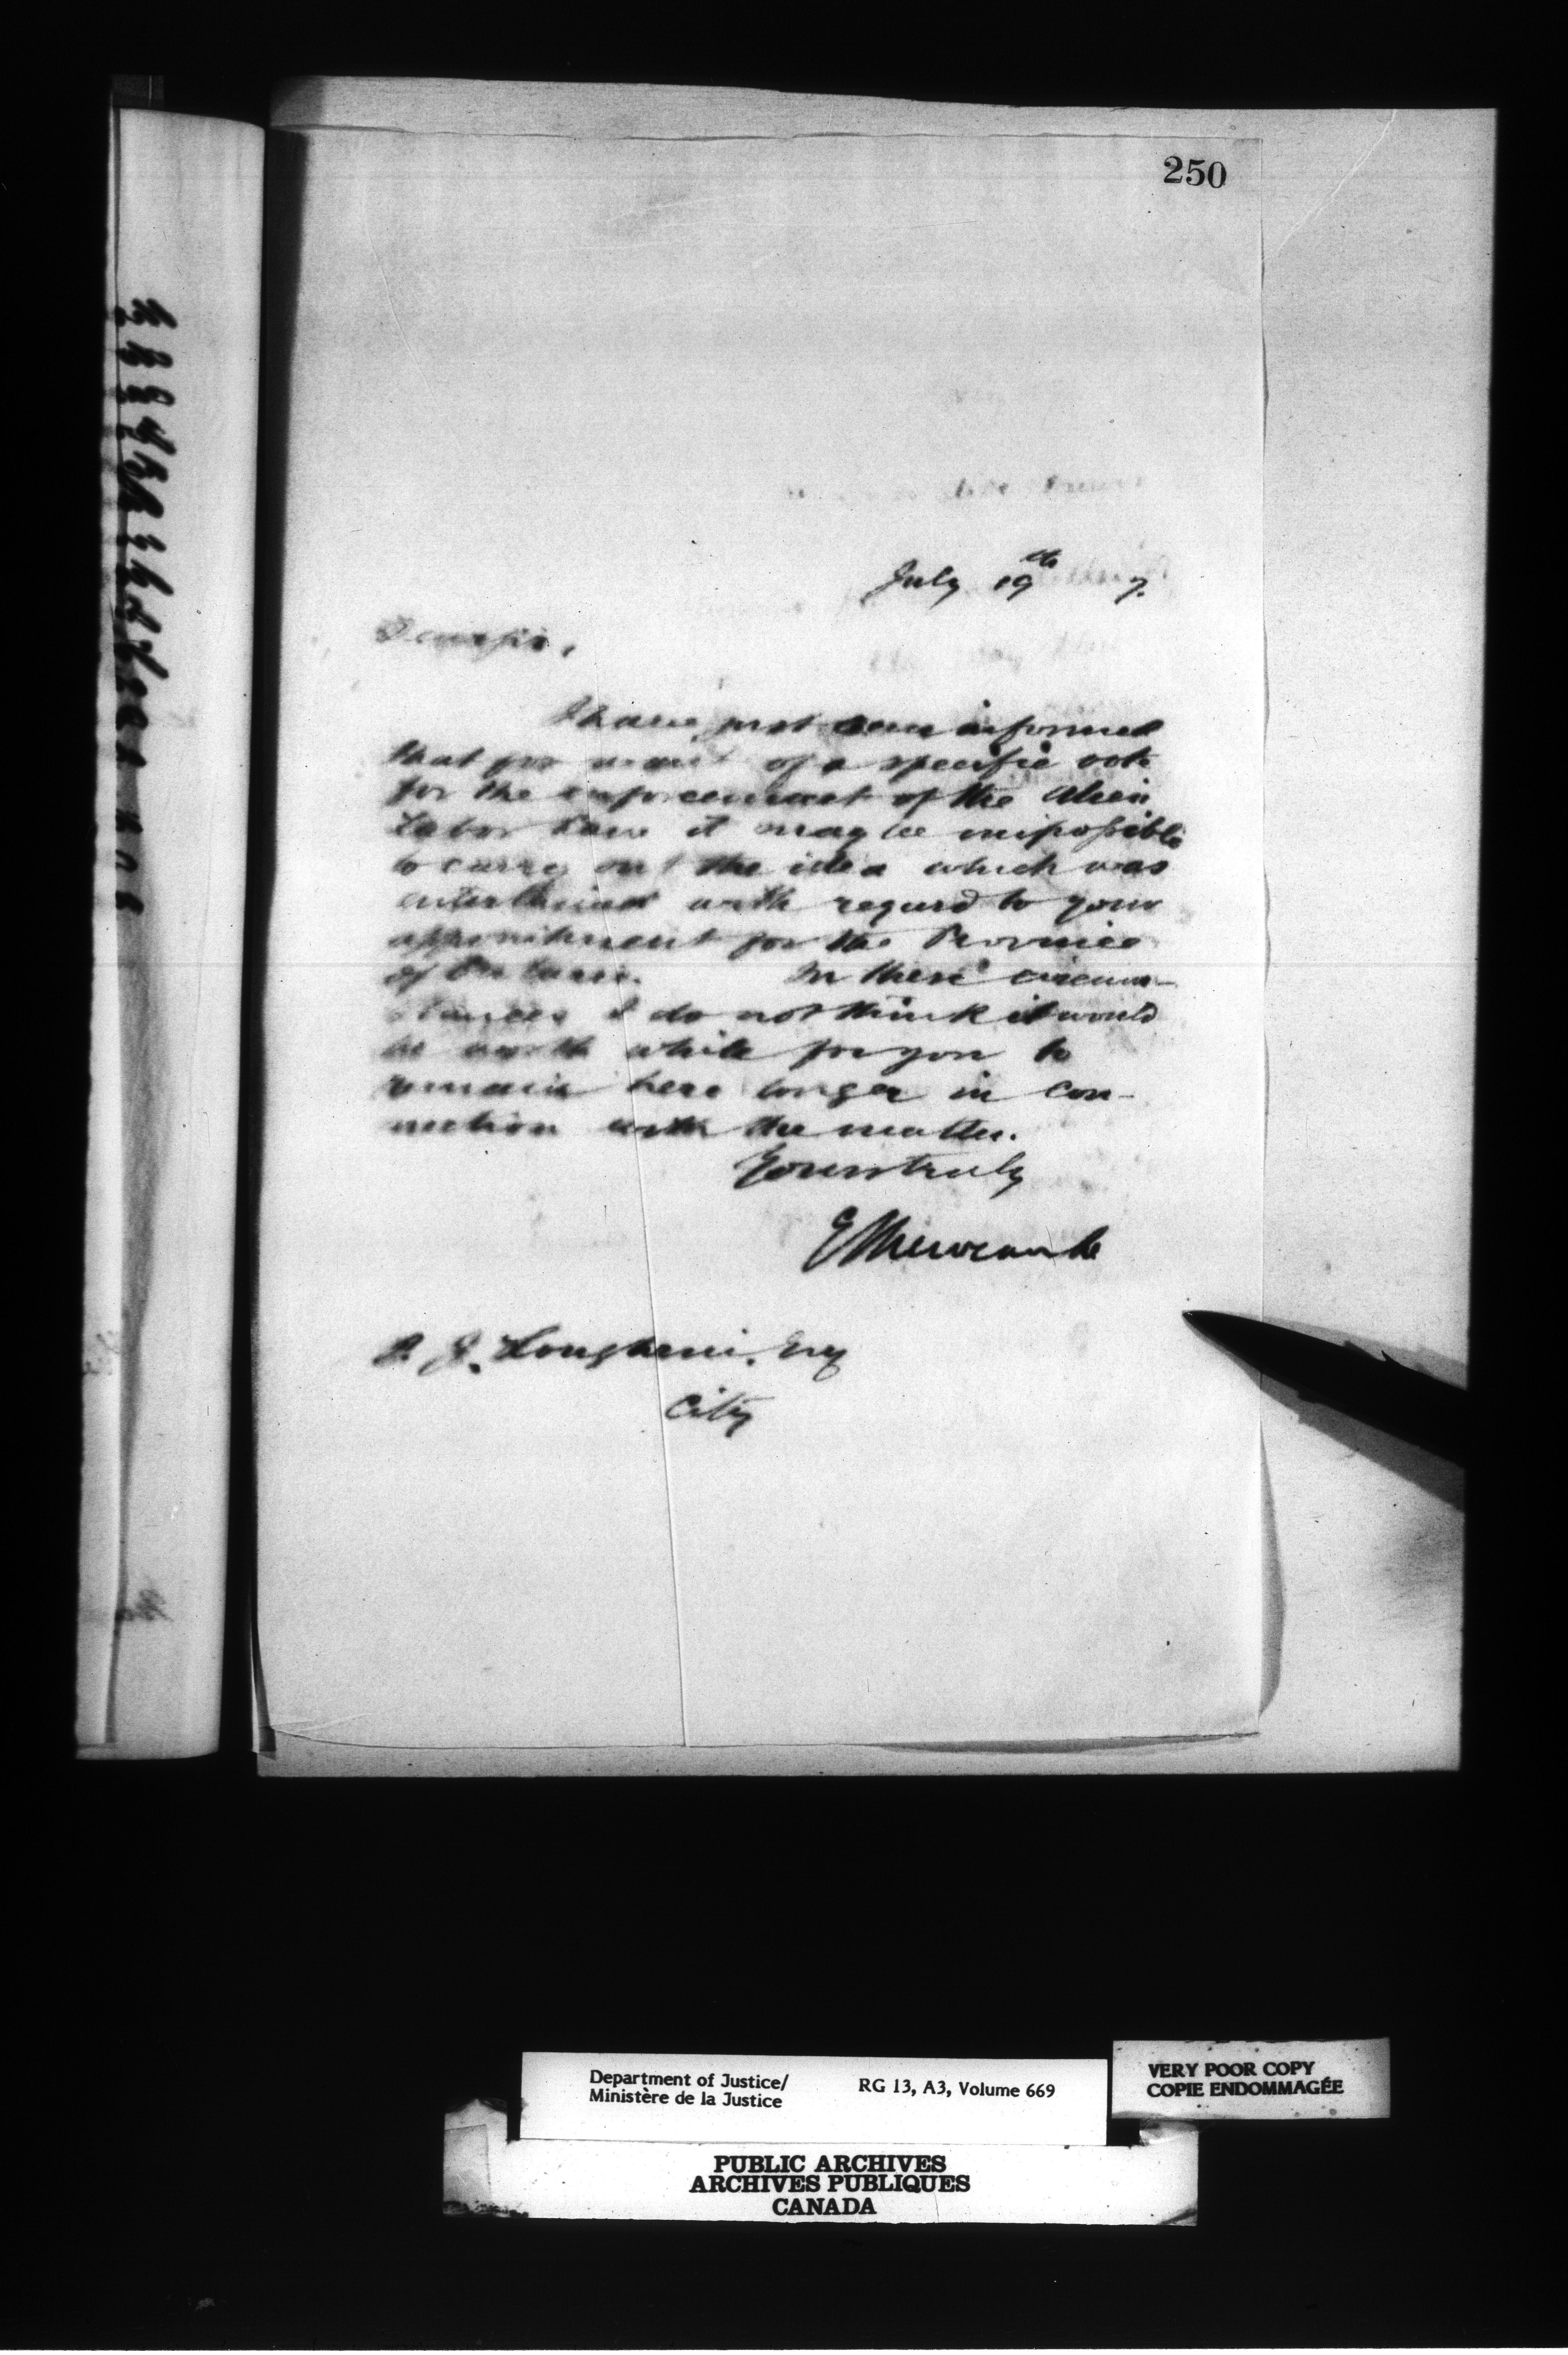 250
July 19th 7.
Dear Sir,
I have just been informed
that for want of a specific vote
for the enforcement of the Alien
Labor Law it may be impossible
to carry out the idea which was
entertained with regard to your
appointment for the Province
of Ontario. In these circum-
stances I do not think it would
be worth while for you to
remain here longer in con-
nection with the matter.
Yours truly
E Newcombe
J. Esq
City
Department of Justice/
Ministère de la Justice
RG 13, A3, Volume 669
VERY POOR COPY
COPIE ENDOMMAGÉE
PUBLIC ARCHIVES
ARCHIVES PUBLIQUES
CANADA